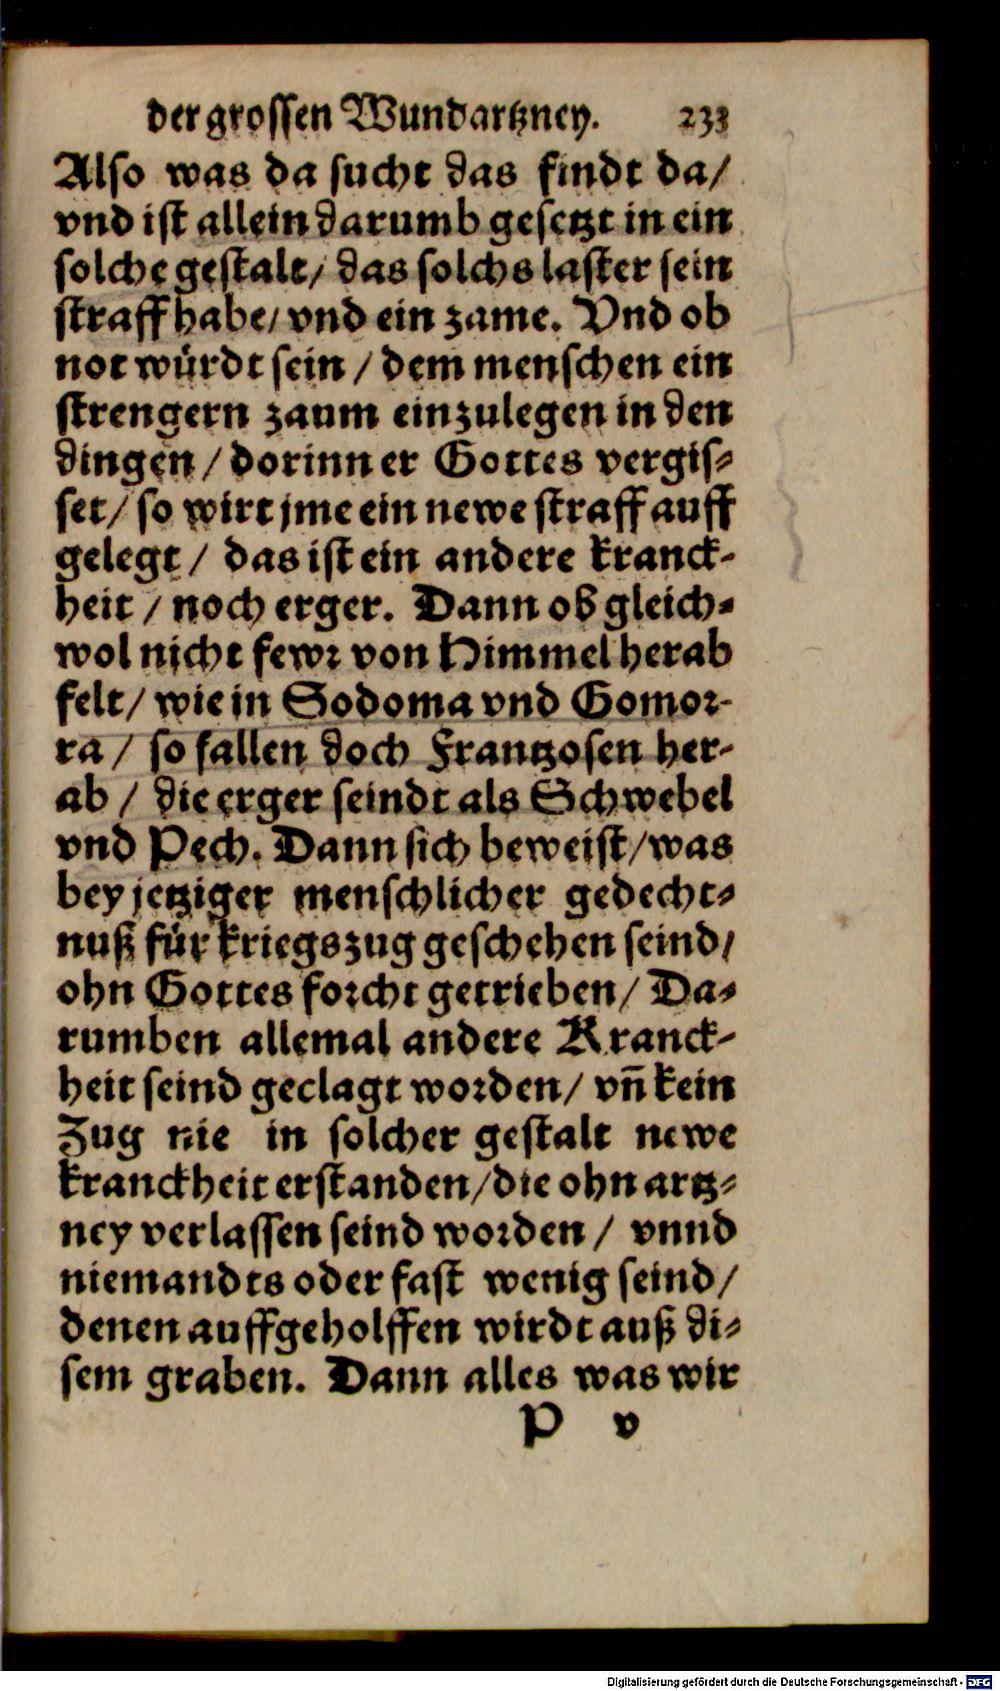 der grossen Wundartzney. 233
Also was da sucht das findt da/
vnd ist allein darumb gesetzt in ein
solche gestalt/ das solchs laster sein
straff habe/ vnd ein zame. Vnd ob
not würdt sein / dem menschen ein
strengern zaum einzulegen in den
dingen / dorinn er Gottes vergis-
set/ so wirt jme ein newe straff auff
gelegt / das ist ein andere kranck-
heit / noch erger. Dann ob gleich-
wol nicht fewr von Himmel herab
felt/ wie in Sodoma vnd Gomor-
ra / so fallen doch Frantzosen her-
ab / die erger seindt als Schwebel
vnd Pech. Dann sich beweist/was
bey jetziger menschlicher gedecht-
nuß für kriegszug geschehen seind/
ohn Gottes forcht getrieben/ Da-
rumben allemal andere Kranck-
heit seind geclagt worden/ vn̄ kein
Zug nie in solcher gestalt newe
kranckheit erstanden/die ohn artz-
ney verlassen seind worden / vnnd
niemandts oder fast wenig seind/
denen auffgeholffen wirdt auß di-
sem graben. Dann alles was wir
P v
Digitalisierung gefördert durch die Deutsche Forschungsgemeinschaft - DFG